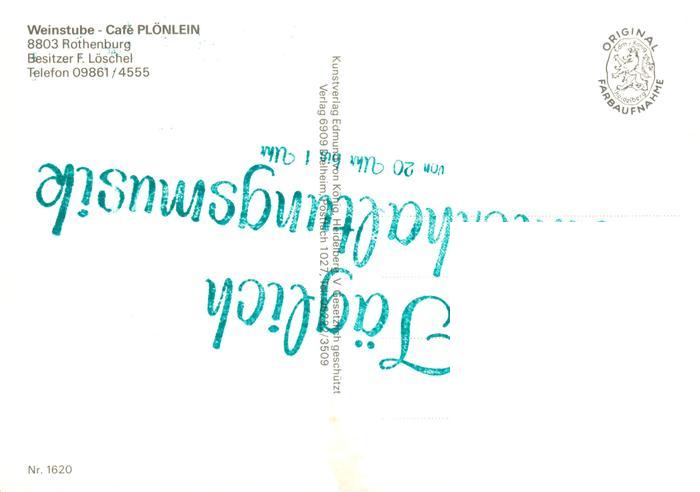 Weinstube - Café PLÖNLEIN
8803 Rothenburg
Besitzer F. Löschel
Telefon 09861/4555
ORIGINAL
FARBAUFNAHME
Kunstverlag Edmund von König, Heidelberg, V. Gesetzlich geschützt
Verlag 6909 Dielheim, Postfach 1027, /3509
Täglich
haltungsmusik
von 20 Uhr bis 1 Uhr
Nr. 1620